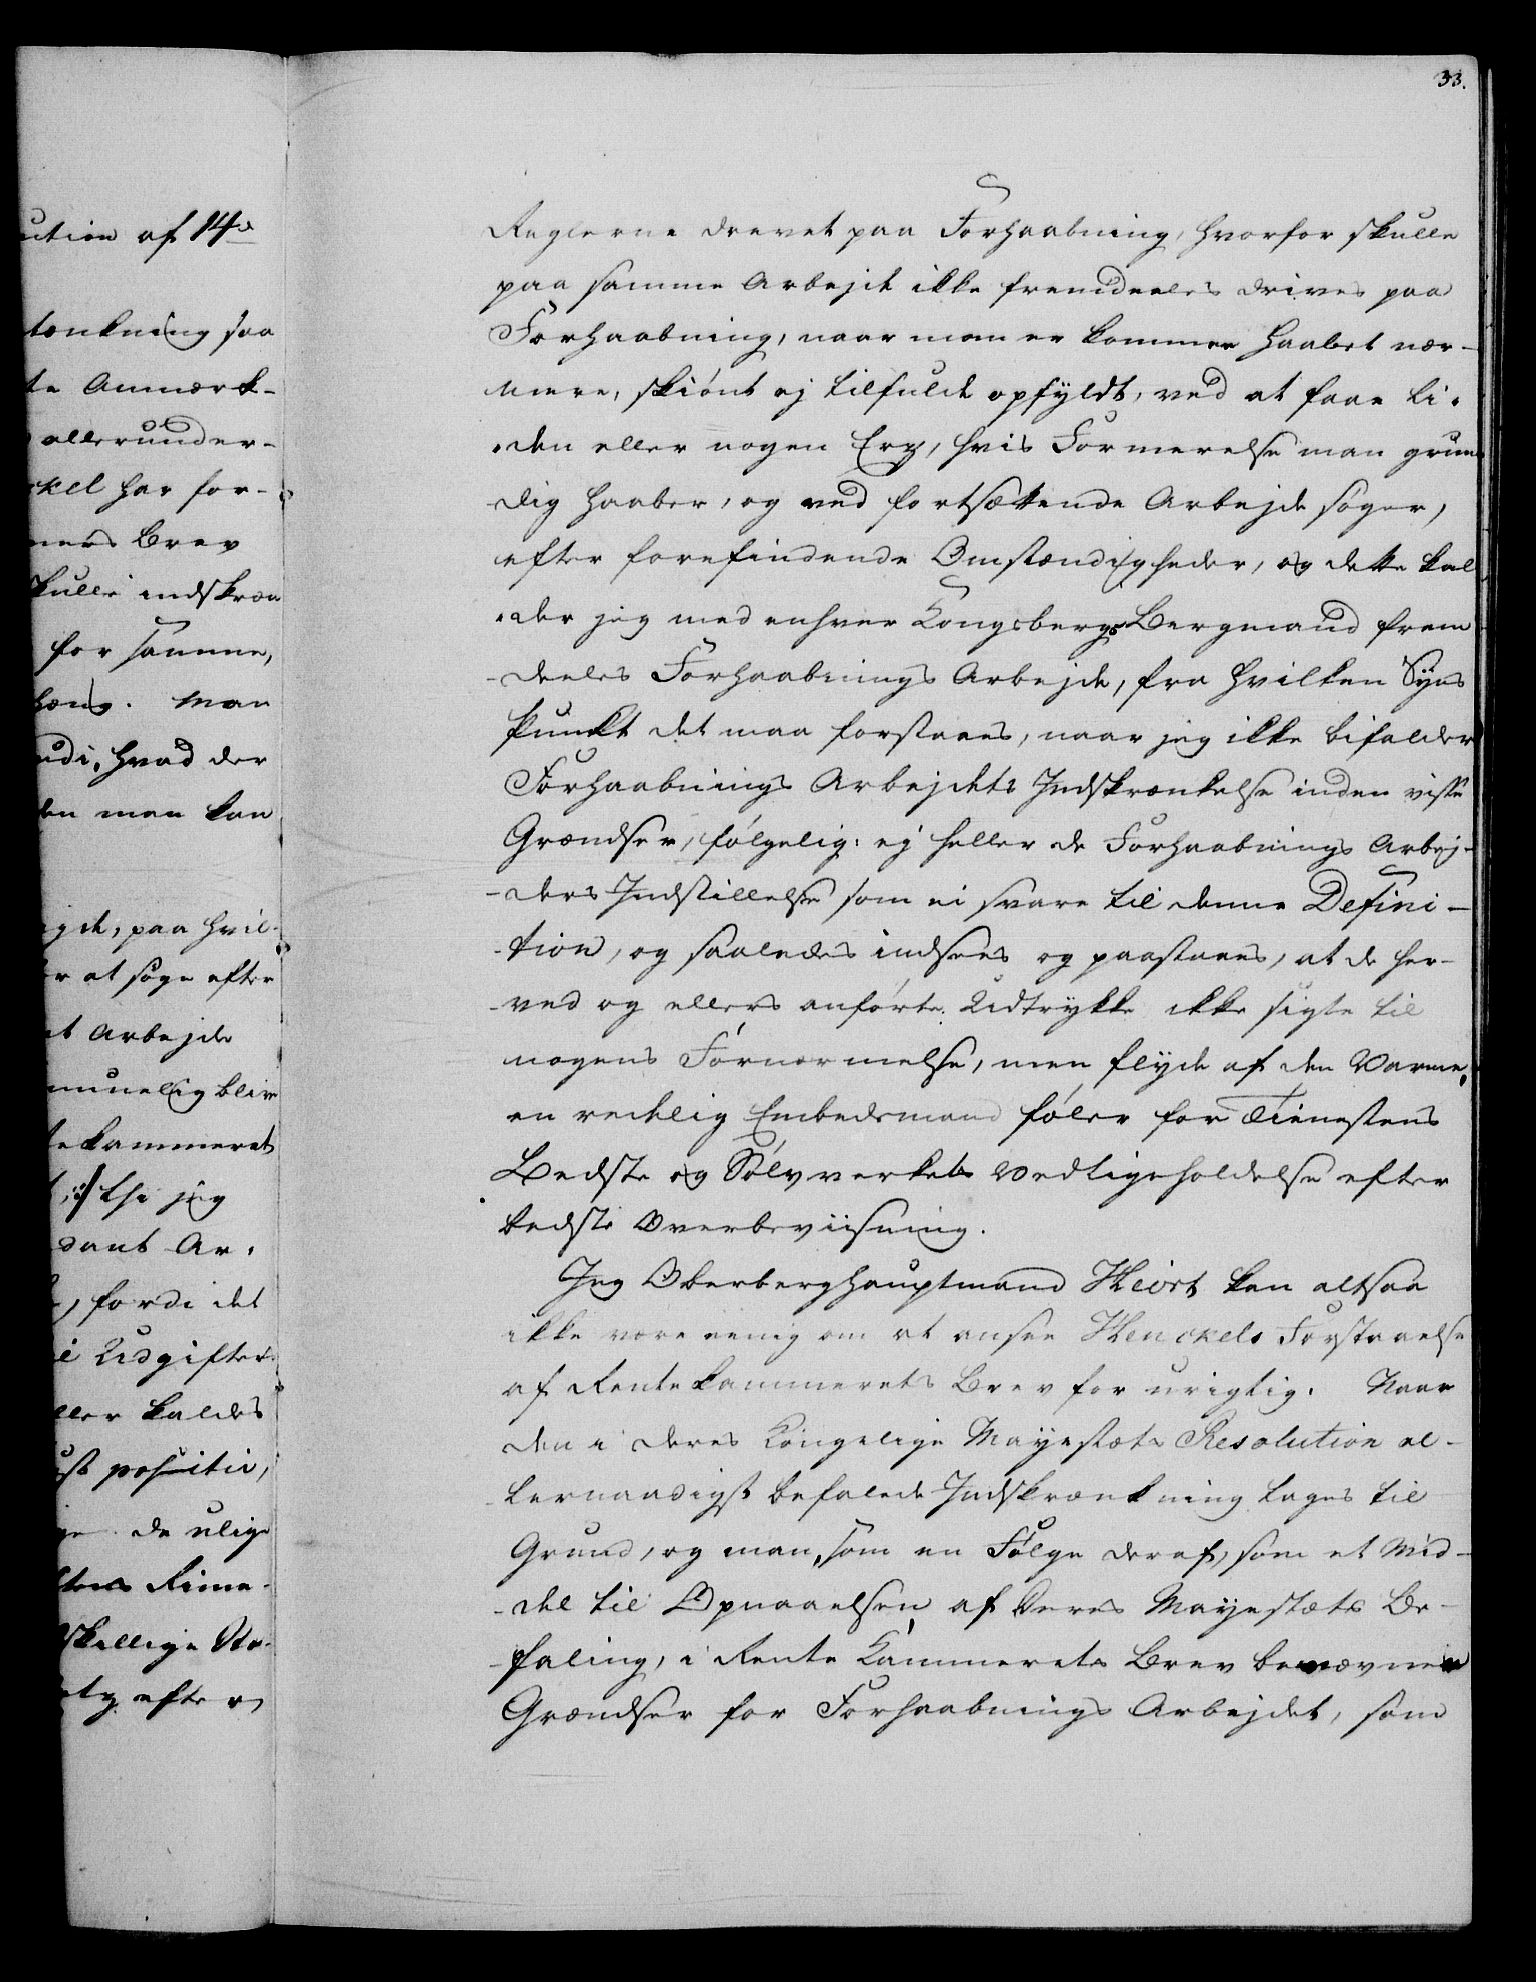 33.
ution af 14de
tænkning saa
te Anmærk-
allerunder-
kel har for-
mers Brev
skulle indskræn
for samme,
hæng. Man
udi, hvad der
den man kan
ejde, paa hvil-
er at søge efter
et Arbejde
muelig blive
tekammeret
thi jeg
dant Ar-
fordi det
e Udgifter
ller kaldes
positiv,
de ulige
Rime-
skellige
efter
Reglerne drevet paa Forhaabning, hvorfor skulle
paa samme Arbejde ikke fremdeeles drives paa
Forhaabning, naar man er kommen Haabet nær-
mere, skiønt ej tilfulde opfyldt, ved at faae li-
den eller nogen Erz, hvis Formerelse man grun
dig haaber, og ved fortsættende Arbejde søger,
efter forefindende Omstændigheder, og dette kal
der jeg med enhver Kongsbergs Bergmand frem
deeles Forhaabnings Arbejde, fra hvilken Syns
Punkt det maa forstaaes, naar jeg ikke bifalder
Forhaabnings Arbejdets Indskrænkelse inden visse
Grændser, følgelig ej heller de Forhaabnings Arbej-
ders Indstillelse som ei svare til denne Defini-
tion, og saaledes indsees og paastaaes, at de her-
ved og ellers anførte Udtrykke ikke sigte til
nogens Fornærmelse, men flyde af den Varme,
en redelig Embedsmand føler for Tienestens
Bedste og Sølvverkets Vedligeholdelse efter
bedste Overbeviisning.
Jeg Oberberghauptmand Hiort kan altsaa
ikke være eenig om at ansee Henckels Forstaaelse
af Rentekammerets Brev for urigtig. Naar
den i Deres Kongelige Mayestæts Resolution al-
lernaadigst befalede Indskrænkning tages til
Grund, og man, som en Følge deraf, som et Mid-
del til Opnaaelsen af Deres Mayestæts Be-
faling, i Rente Kammerets Brev benævner
Grændser for Forhaabnings Arbejdet, som